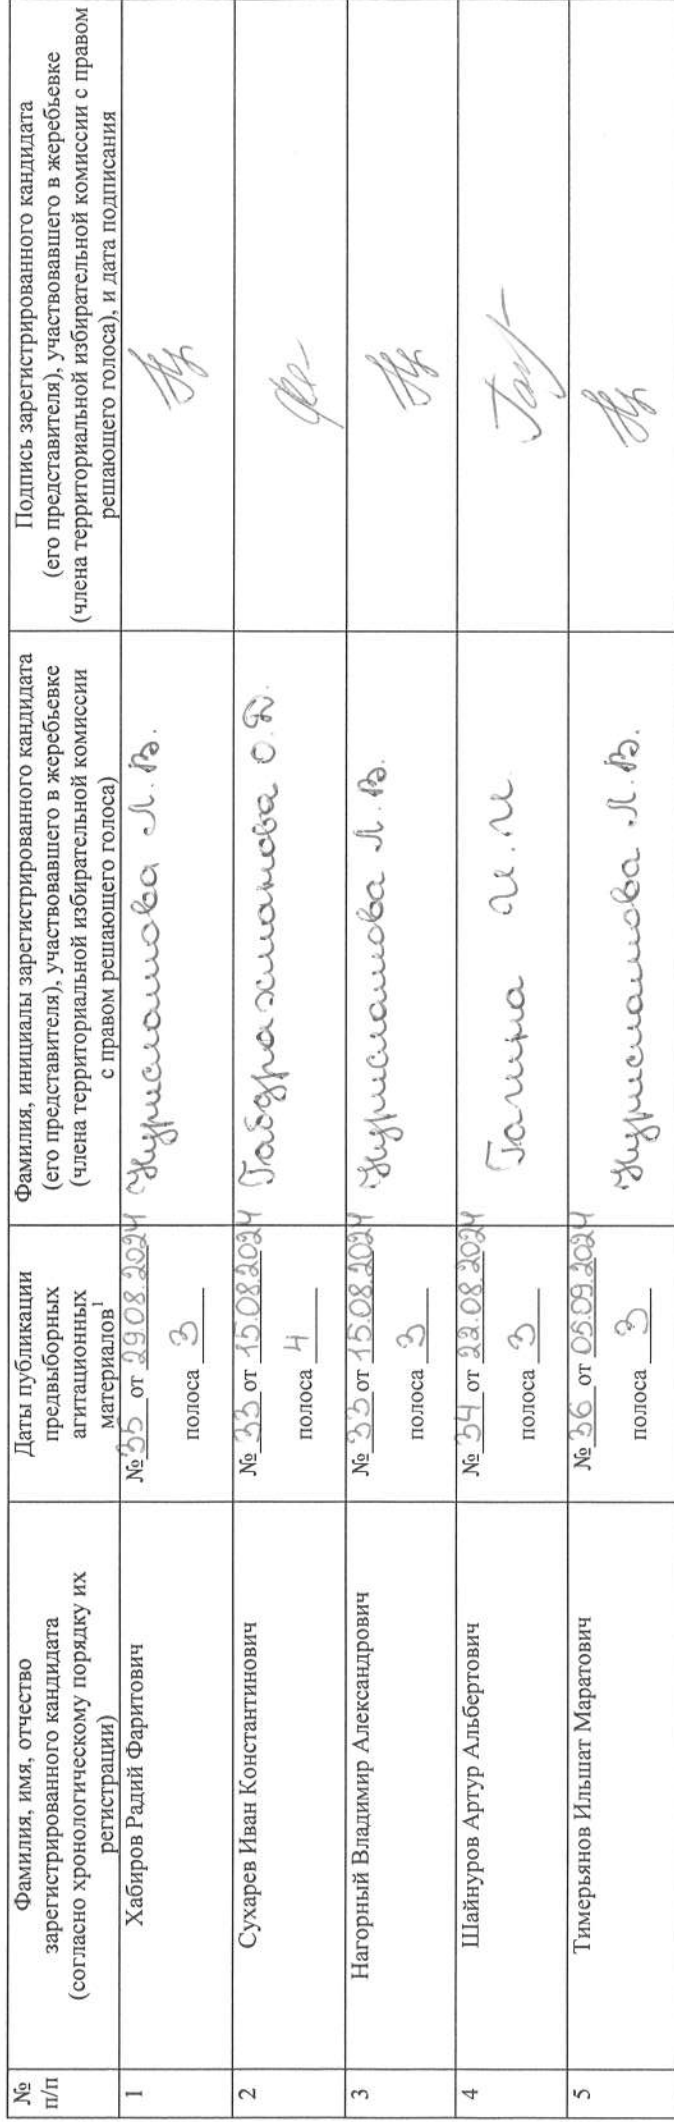 №
п/п
Фамилия, имя, отчество
зарегистрированного кандидата
(согласно хронологическому порядку их
регистрации)
Даты публикации
предвыборных
агитационных
материалов¹
Фамилия, инициалы зарегистрированного кандидата
(его представителя), участвовавшего в жеребьевке
(члена территориальной избирательной комиссии
с правом решающего голоса)
Подпись зарегистрированного кандидата
(его представителя), участвовавшего в жеребьевке
(члена территориальной избирательной комиссии с правом
решающего голоса), и дата подписания
1
Хабиров Радий Фаритович
№ 35 от 29.08.2024
полоса 3
Нурисламова Л. В.
2
Сухарев Иван Константинович
№ 33 от 15.08.2024
полоса 4
Габдрахманова О. Д.
3
Нагорный Владимир Александрович
№ 33 от 15.08.2024
полоса 3
Нурисламова Л. В.
4
Шайнуров Артур Альбертович
№ 34 от 22.08.2024
полоса 3
И. И.
5
Тимерьянов Ильшат Маратович
№ 36 от 05.09.2024
полоса 3
Нурисламова Л. В.